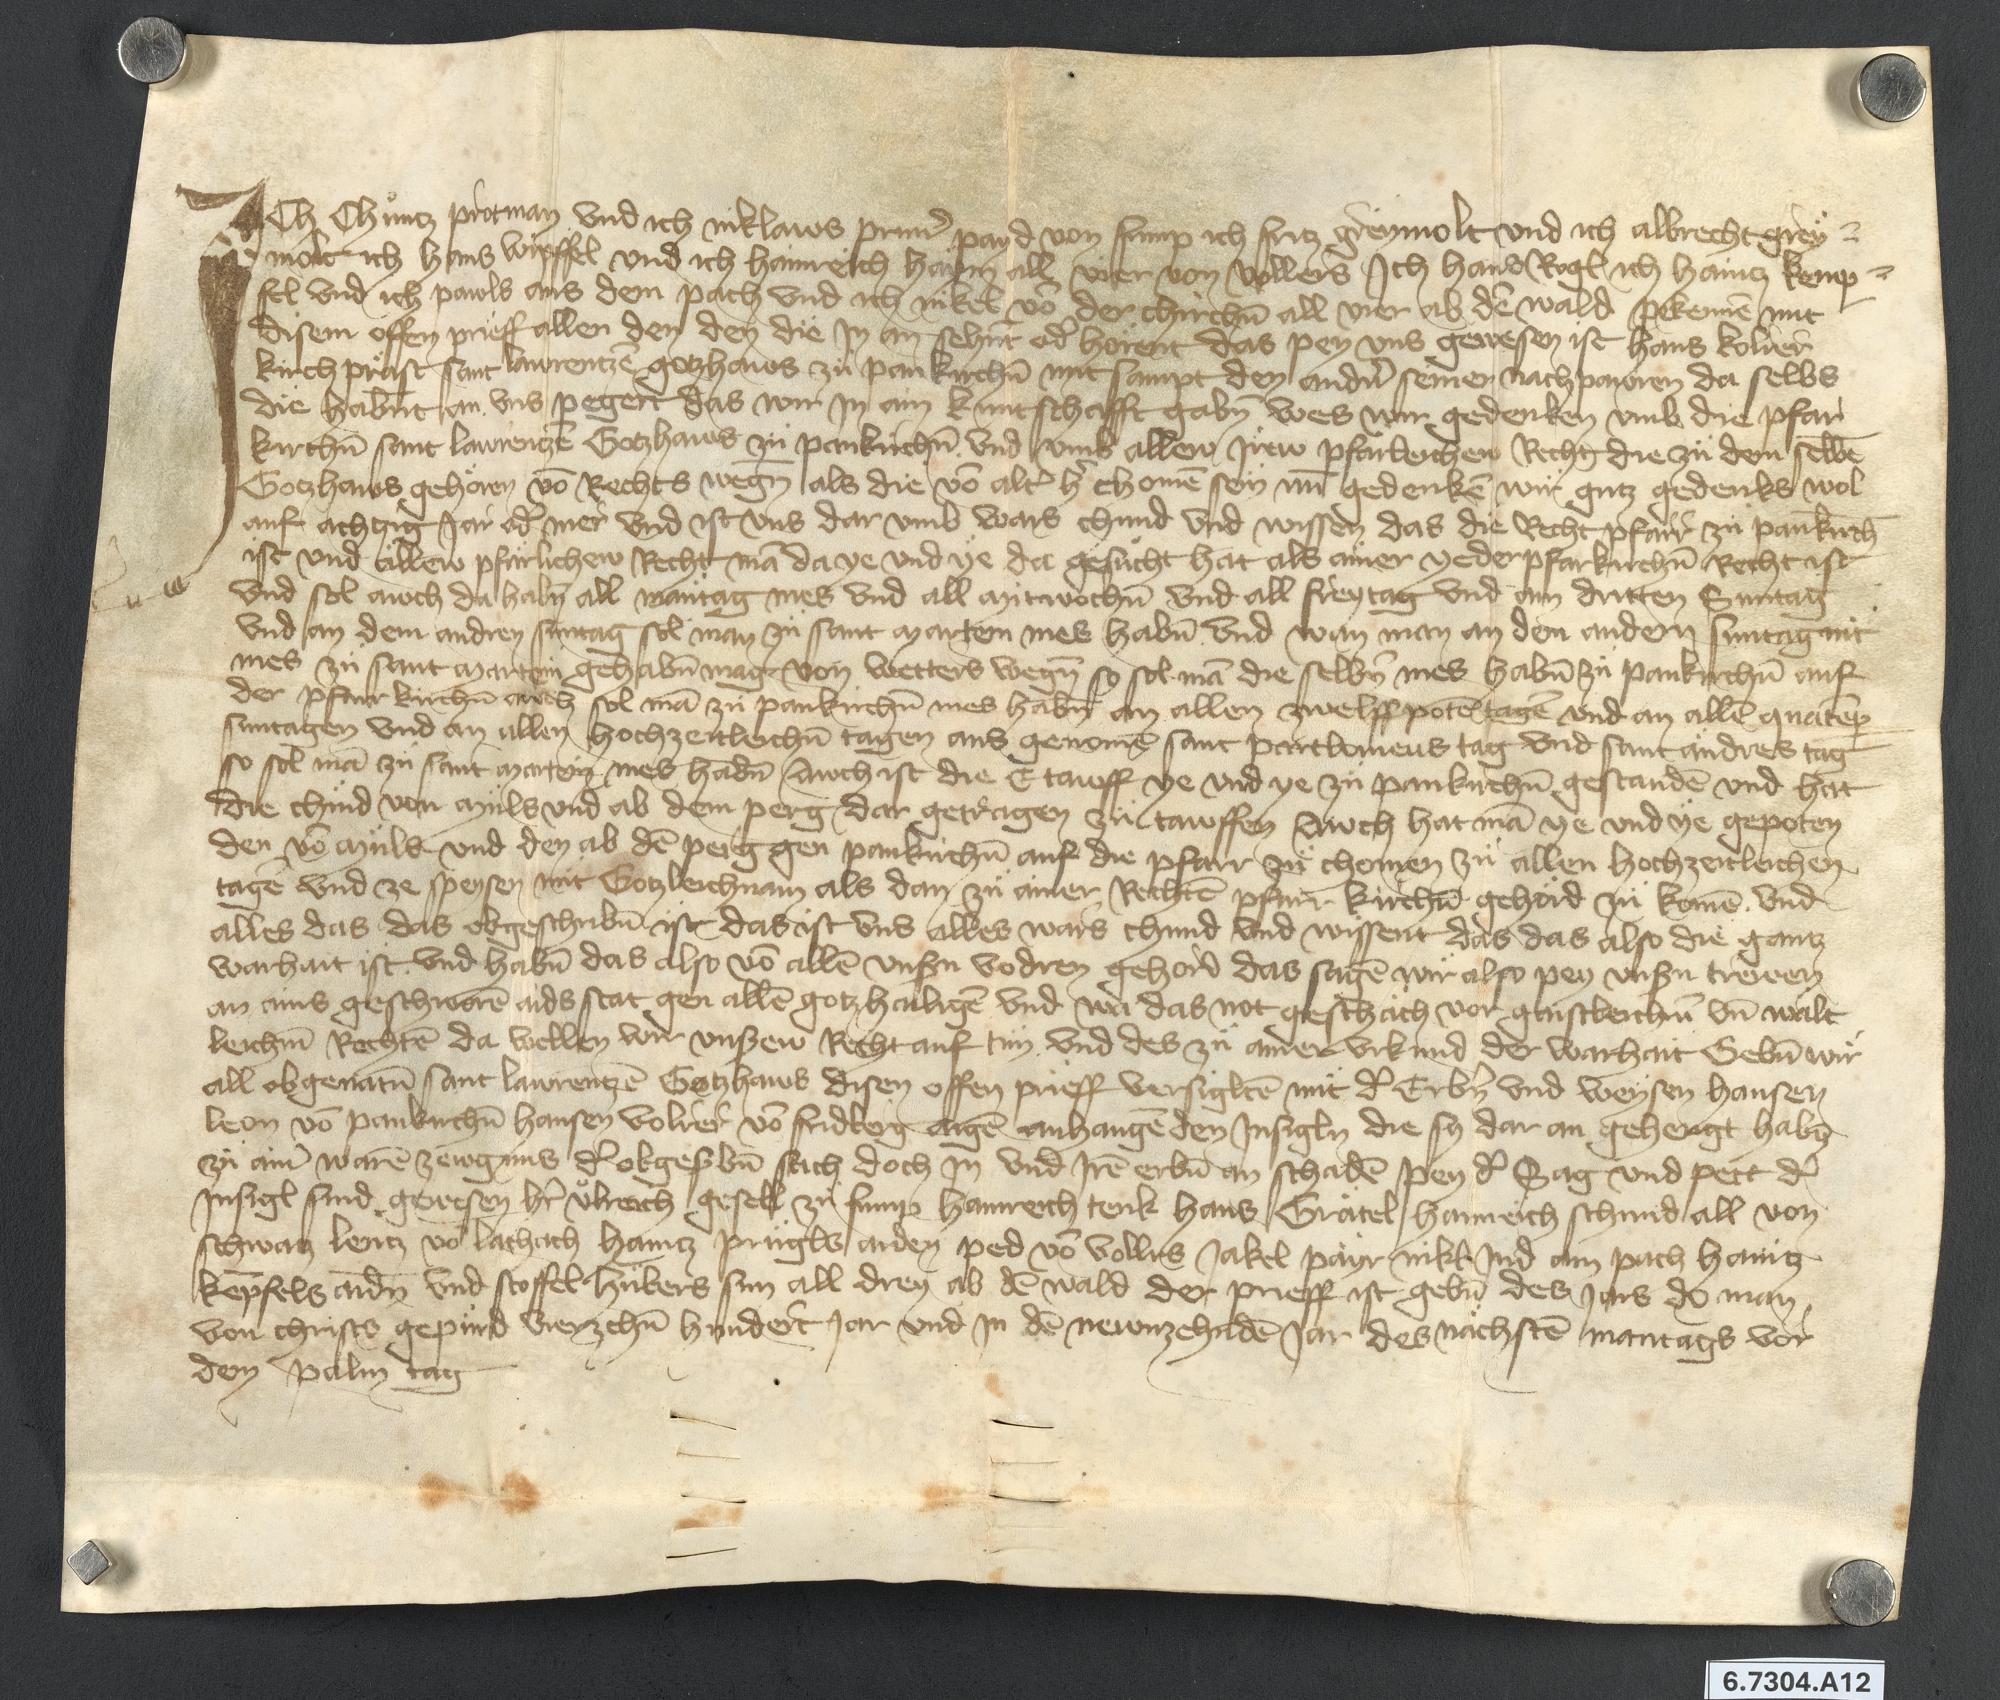 ICh Chüntz protman vnd ich niklaws prunēr payd von fump ich fritz greymolt vnd ich albrecht grey=
molt ich hans wipffel vnd ich hainreich haym all vier von vollers Ich hans Rogl ich haintz kemp=
fel vnd ich pawls aus dem pach vnd ich nikel vō der chirchn̄ all vier ab dē wald pekennē mit
disem offen prieff allen den den die in an sehnt od̄ hörent das pey vns gewesen ist hans kolrer
kirch präst sant lawrentzē gotzhaws zü pankirchn̄ mit sampt den andn̄ seinen nachpawren da selbs
die habnt an vns pegert das wir in ain kuntschafft gabn̄ wes wir gedenken vmb die pfar
kirchn̄ sant lawrentzē Gotzhaws zü pankirchn̄ vnd vmb allew irew pfarleichew Recht die zü dem selbē
Gotzhaws gehören vō Rechts wegn̄ als die vō alt̄ h̄ chomē sey nū gedenkē wir gutz gedenks wol
auf achtzig Jar od̄ mer vnd ist vns dar vmb wars chund vnd wissen das die Recht pfarr zü pankirch̄
ist vnd allew pfärlichew Recht mā da ye vnd ye da gesücht hat als ainer yeder pfarkirchn̄ Recht ist
vnd sol awch da habn̄ all mäntag mes vnd all mitwochn̄ vnd all freytag vnd am dritten Suntag
vnd an dem andren suntag sol man zü sant marten mes habn̄ vnd wan man an dem andern suntag nit
mes zü sant martein gehabn̄ mag von wetters wegn̄ so sol mā die selbn̄ mes habn̄ zü pankirchn̄ auf
der pfarr kirchn̄ auch sol mā zü pankirchn̄ mes habn̄ an allen zwelff potē tagē vnd an allē quatēp̄
suntagen vnd an allen hochzeitleichn̄ tagen aus genomē sant partlomeus tag vnd sant andres tag
so sol mā zü sant martein mes habn̄ Awch ist die E tawff ye vnd ye zü pankirchn̄ gestandē vnd hat
die chind von müls vnd ab dem perg dar getragen zü tawffen Awch hat mā ye vnd ye gepoten
den vō müls vnd den ab dē perg gen pankirchn̄ auf die pfarr zü chomen zü allen hochzeitleichen
tagē vnd ze speysen mit Gotzleichnam als dan zü ainer Rechtē pfarr kirchn̄ gehörd zü komē vnd
alles das das obgeschribn̄ ist das ist vns alles wars chund vnd wissent das das also die gantz
warhait ist vnd habn̄ das also vō allē vnsn̄ vodren gehörd das sagē wir also pey vnsn̄ trewen
an ains geschworē aids stat gen allē gotz hailigē vnd wa das not geschäch vor gaistleichn̄ vn̄ walt
leichn̄ Rechtē da wellen wir vnsrew Recht auf tün vnd des zü ainer vrkund der warhait Gebn̄ wir
all obgenatn̄ sant lawrentzē Gotzhaws disen offen prieff versigltē mit d̄ Erbn̄ vnd weysen hansen
leon vō pankirchn̄ hansen volrer vō fridberg aigē anhangēden Insigln die sy dar an gehengt habn̄
zü ain̄ warē zewgnus d̄ obgeschn̄ sach doch in vnd irē erbn̄ an schadē pey d̄ Sag vnd pett d̄
Insigl sind gewesen h̄ vlreich gesell zü fump hainreich tenk hans Grätel hainreich schmid all von
schwatz lentz vō lachach haintz prügls aiden ped vō vollrs Jakel payr nikl Ind am pach haintz
kēpfels aidn̄ vnd stoffel hübers sun all drey ab dē wald der prieff ist gebn̄ des Jars do man
von christs gepürd vierzehn̄ hundert Jar vnd in dē newnzehndē Jar des nächstē mantags vor
dem palm tag
6.7304.A12